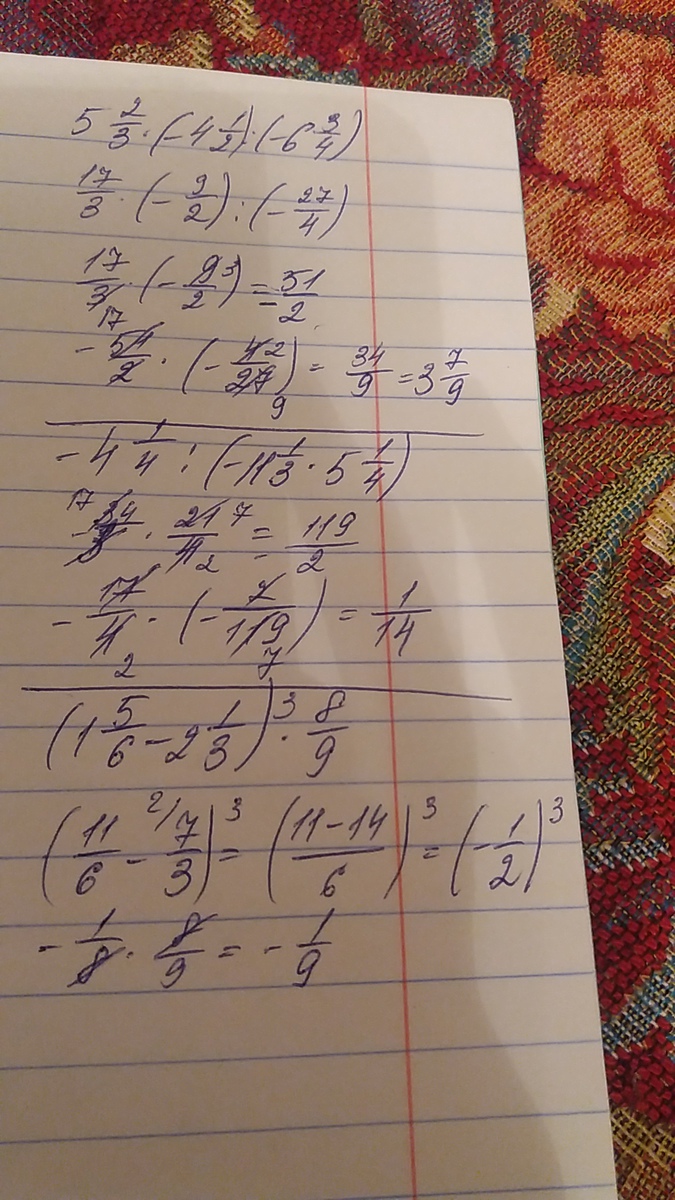 5 2/3 · (-4 1/2) : (-6 3/4)
17/3 · (-9/2) : (-27/4)
17/3 · (-9/2) 3 = -51/2
17
-51/2 · (-4/27) 2 = 34/9 = 3 7/9
9
-4 1/4 : (-11 1/3 · 5 1/4)
17 -34/3 · 21/4 7 2 = -119/2
-17/4 · (-2/119) = 1/14
2 7
(1 5/6 - 2 1/3)³ · 8/9
(11/6 - 2/ 7/3)³ = ((11-14)/6)³ = (-1/2)³
-1/8 · 8/9 = -1/9